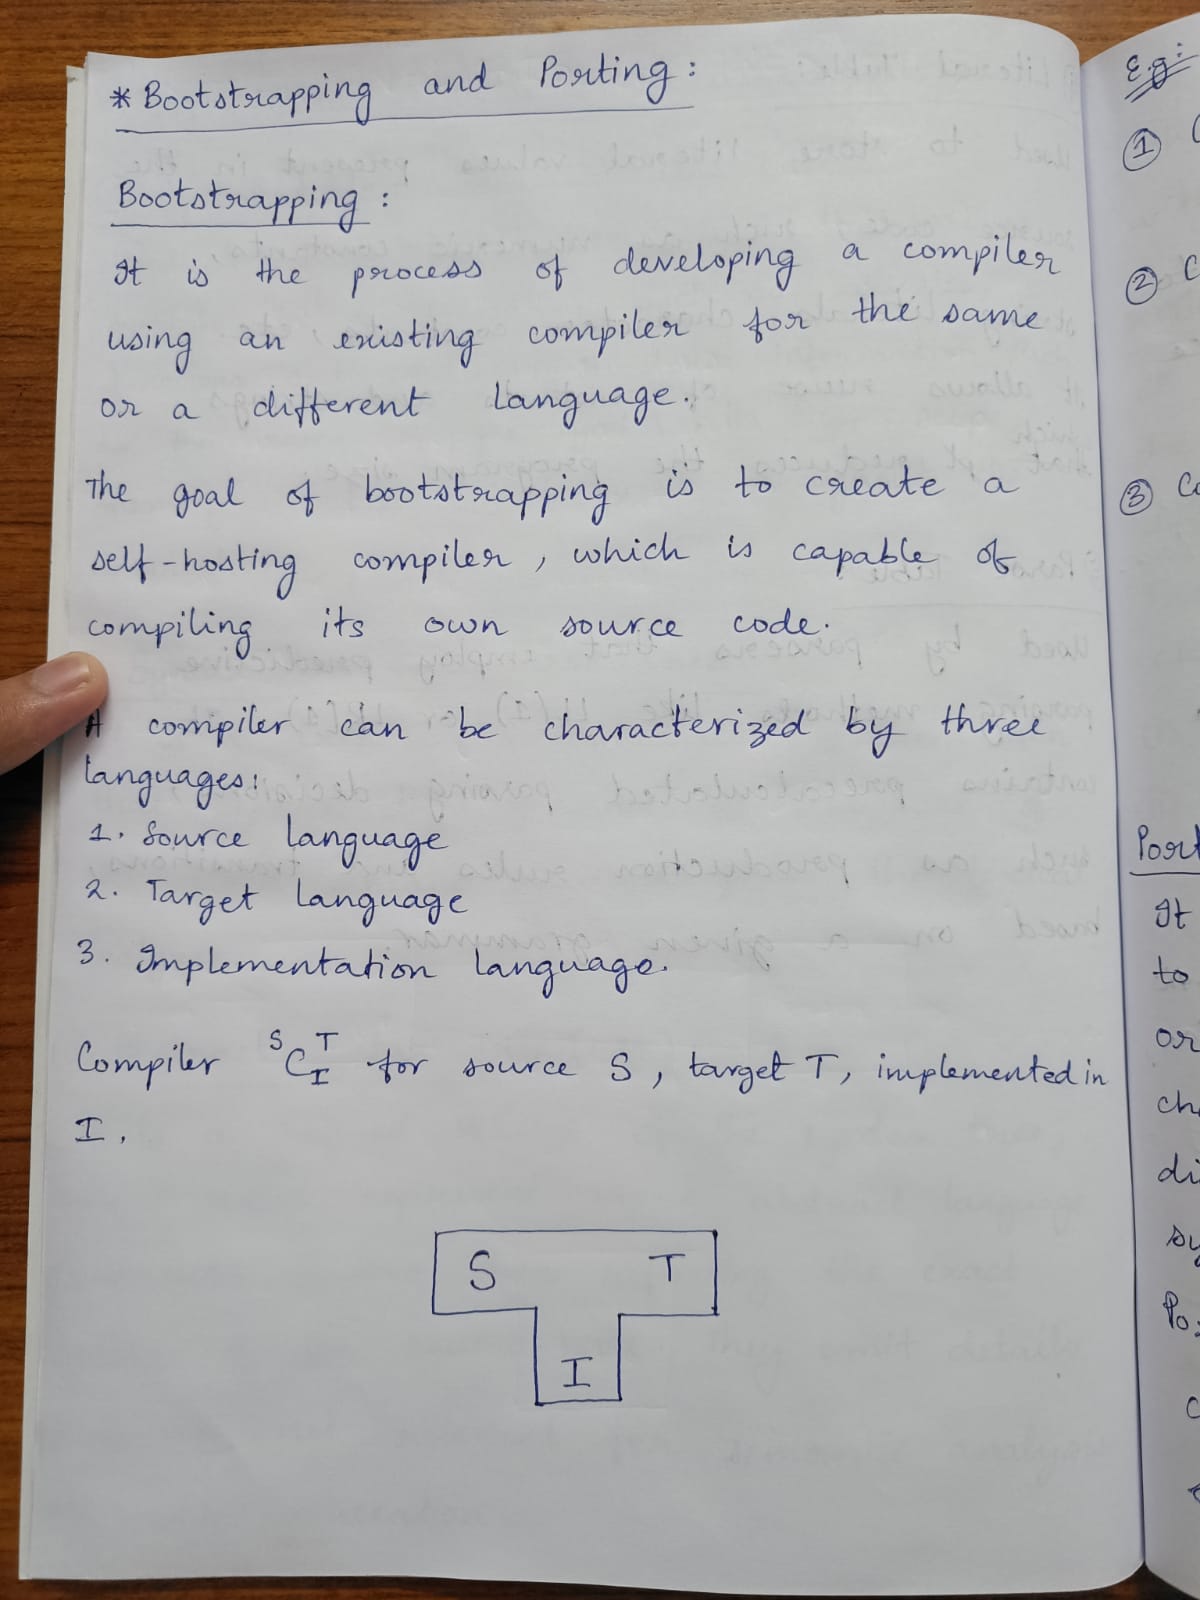 * Bootstrapping and Porting :
Bootstrapping :
It is the process of developing a compiler
using an existing compiler for the same
or a different language.
The goal of bootstrapping is to create a
self-hosting compiler, which is capable of
compiling its own source code.
A compiler can be characterized by three
languages:
1. Source language
2. Target language
3. Implementation language.
Compiler SCIT for source S, target T, implemented in
I.
S T
I
E.g:
1
2 C
3 Co
Port
It
to
or
ch
di
sy
Po
C